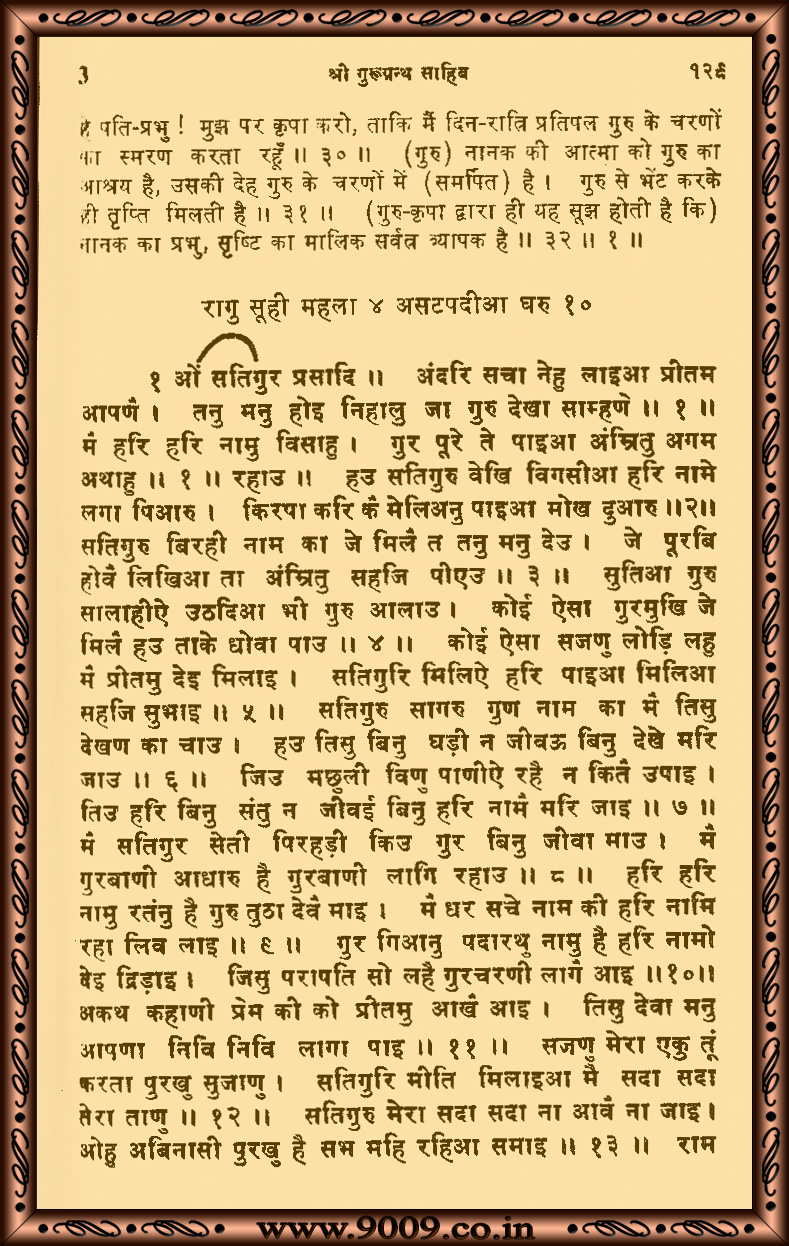 3 श्री गुरूग्रन्थ साहिब १२६
हे पति-प्रभु ! मुझ पर कृपा करो, ताकि मैं दिन-रात्रि प्रतिपल गुरु के चरणों
का स्मरण करता रहूँ ॥ ३० ॥ (गुरु) नानक की आत्मा को गुरु का
आश्रय है, उसकी देह गुरु के चरणों में (समर्पित) है । गुरु से भेंट करके
ही तृप्ति मिलती है ॥ ३१ ॥ (गुरु-कृपा द्वारा ही यह सूझ होती है कि)
नानक का प्रभु, सृष्टि का मालिक सर्वत्र व्यापक है ॥ ३२ ॥ १ ॥
रागु सूही महला ४ असटपदीआ घरु १०
१ ओं सतिगुर प्रसादि ॥ अंदरि सचा नेहु लाइआ प्रीतम
आपणै । तनु मनु होइ निहालु जा गुरु देखा साम्हणे ॥ १ ॥
मै हरि हरि नामु विसाहु । गुर पूरे ते पाइआ अंम्रितु अगम
अथाहु ॥ १ ॥ रहाउ ॥ हउ सतिगुरु वेखि विगसीआ हरि नामे
लगा पिआरु । किरपा करि कै मेलिअनु पाइआ मोख दुआरु ॥२॥
सतिगुरु बिरही नाम का जे मिलै त तनु मनु देउ । जे पूरबि
होवै लिखिआ ता अंम्रितु सहजि पीएउ ॥ ३ ॥ सुतिआ गुरु
सालाहीऐ उठदिआ भी गुरु आलाउ । कोई ऐसा गुरमुखि जे
मिलै हउ ताके धोवा पाउ ॥ ४ ॥ कोई ऐसा सजणु लोड़ि लहु
मै प्रीतमु देइ मिलाइ । सतिगुरि मिलिऐ हरि पाइआ मिलिआ
सहजि सुभाइ ॥ ५ ॥ सतिगुरु सागरु गुण नाम का मै तिसु
देखण का चाउ । हउ तिसु बिनु घड़ी न जीवऊ बिनु देखे मरि
जाउ ॥ ६ ॥ जिउ मछुली विणु पाणीऐ रहै न कितै उपाइ ।
तिउ हरि बिनु संतु न जीवई बिनु हरि नामै मरि जाइ ॥ ७ ॥
मै सतिगुर सेती पिरहड़ी किउ गुर बिनु जीवा माउ । मै
गुरबाणी आधारु है गुरबाणी लागि रहाउ ॥ ८ ॥ हरि हरि
नामु रतंनु है गुरु तुठा देवै माइ । मै धर सचे नाम की हरि नामि
रहा लिव लाइ ॥ ९ ॥ गुर गिआनु पदारथु नामु है हरि नामो
देइ द्रिड़ाइ । जिसु परापति सो लहै गुरचरणी लागै आइ ॥१०॥
अकथ कहाणी प्रेम की को प्रीतमु आखै आइ । तिसु देवा मनु
आपणा निवि निवि लागा पाइ ॥ ११ ॥ सजणु मेरा एकु तूं
करता पुरखु सुजाणु । सतिगुरि मीति मिलाइआ मै सदा सदा
तेरा ताणु ॥ १२ ॥ सतिगुरु मेरा सदा सदा ना आवै ना जाइ ।
ओहु अबिनासी पुरखु है सभ महि रहिआ समाइ ॥ १३ ॥ राम
www.9009.co.in